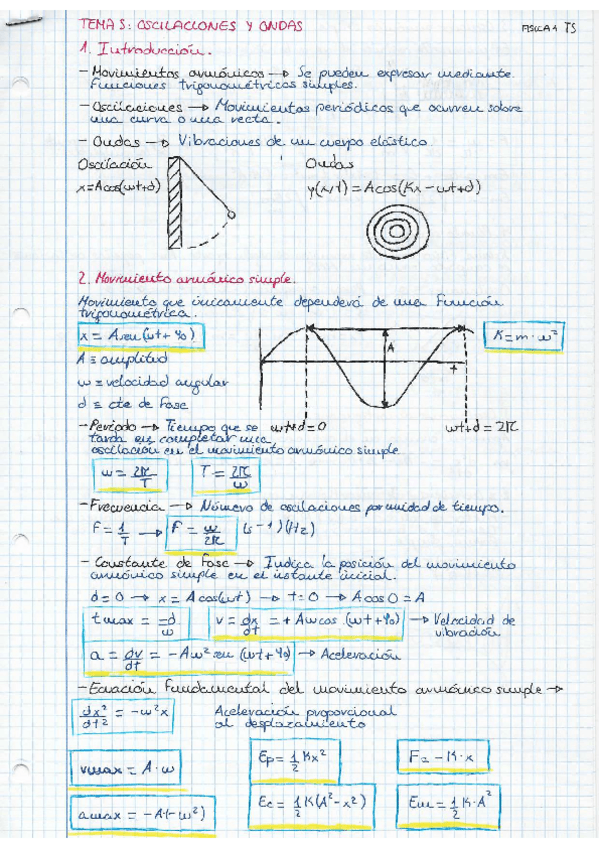 TEMA 5: OSCILACIONES Y ONDAS
FISICA 1 T5
1. Introducción.
- Movimientos armónicos → Se pueden expresar mediante
funciones trigonométricas simples.
- Oscilaciones → Movimientos periódicos que ocurren sobre
una curva o una recta.
- Ondas → Vibraciones de un cuerpo elástico
Oscilación
Ondas
x=Acos(ωt+d)
y(x,t) = Acos(Kx - ωt+d)
2. Movimiento armónico simple.
Movimiento que únicamente dependerá de una función
trigonométrica.
x = A sen (ωt + φ0)
K=m·ω²
A ≡ amplitud
A
t
ω ≡ velocidad angular
d ≡ cte de fase
- Periodo → Tiempo que se
ωt+d=0
ωt+d = 2π
tarda en completar una
oscilación en el movimiento armónico simple
ω = 2π/T
T = 2π/ω
- Frecuencia → Número de oscilaciones por unidad de tiempo.
F = 1/T → F = ω/2π (s-1) (Hz)
- Constante de fase → Indica la posición del movimiento
armónico simple en el instante inicial.
d = 0 → x = A cos(ωt) → t=0 → A cos 0 = A
tmax = -d/ω
v = dx/dt = + Aω cos (ωt+φ0) → Velocidad de
vibración
a = dv/dt = -Aω² sen (ωt+φ0) → Aceleración
- Ecuación fundamental del movimiento armónico simple →
dx²/dt2 = -ω²x
Aceleración proporcional
al desplazamiento
vmax = A·ω
Ep = 1/2 Kx²
F = -K·x
amax = -A(-ω²)
Ec = 1/2 K(A²-x²)
Em = 1/2 K·A²